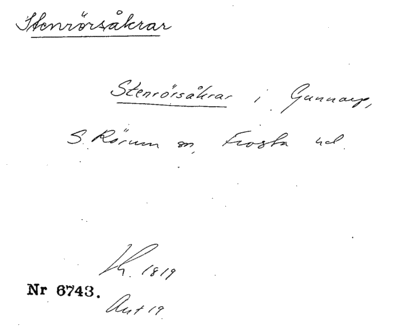 Stenrörsåkrar
Stenrörsåkrar i Gunnarp,
S. Rörum sn, Frosta hd.
Kh. 1819
Nr 6743.
Ant 19